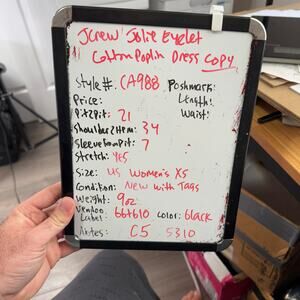 JCrew Jolie Eyelet
Cotton Poplin Dress COPY
Style#: CA988 Poshmark:
Price: Length:
Pit2Pit: 21 Waist:
Shoulder2Hem: 34
SleevefromPit: 7
Stretch: YES
Size: US Women's XS
Condition: New with Tags
Weight: 9oz
Vendoo Label: 66t610 Color: black
Notes: C5 5310